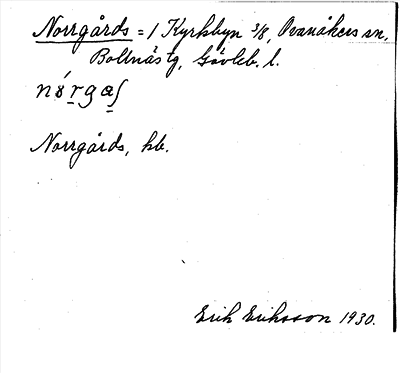 Norrgårds = 1 Kyrkbyn 3/8, Ovanåkers sn,
Bollnäs tg, Gävleb. l.
Norrgårds, hb.
Erik Eriksson 1930.